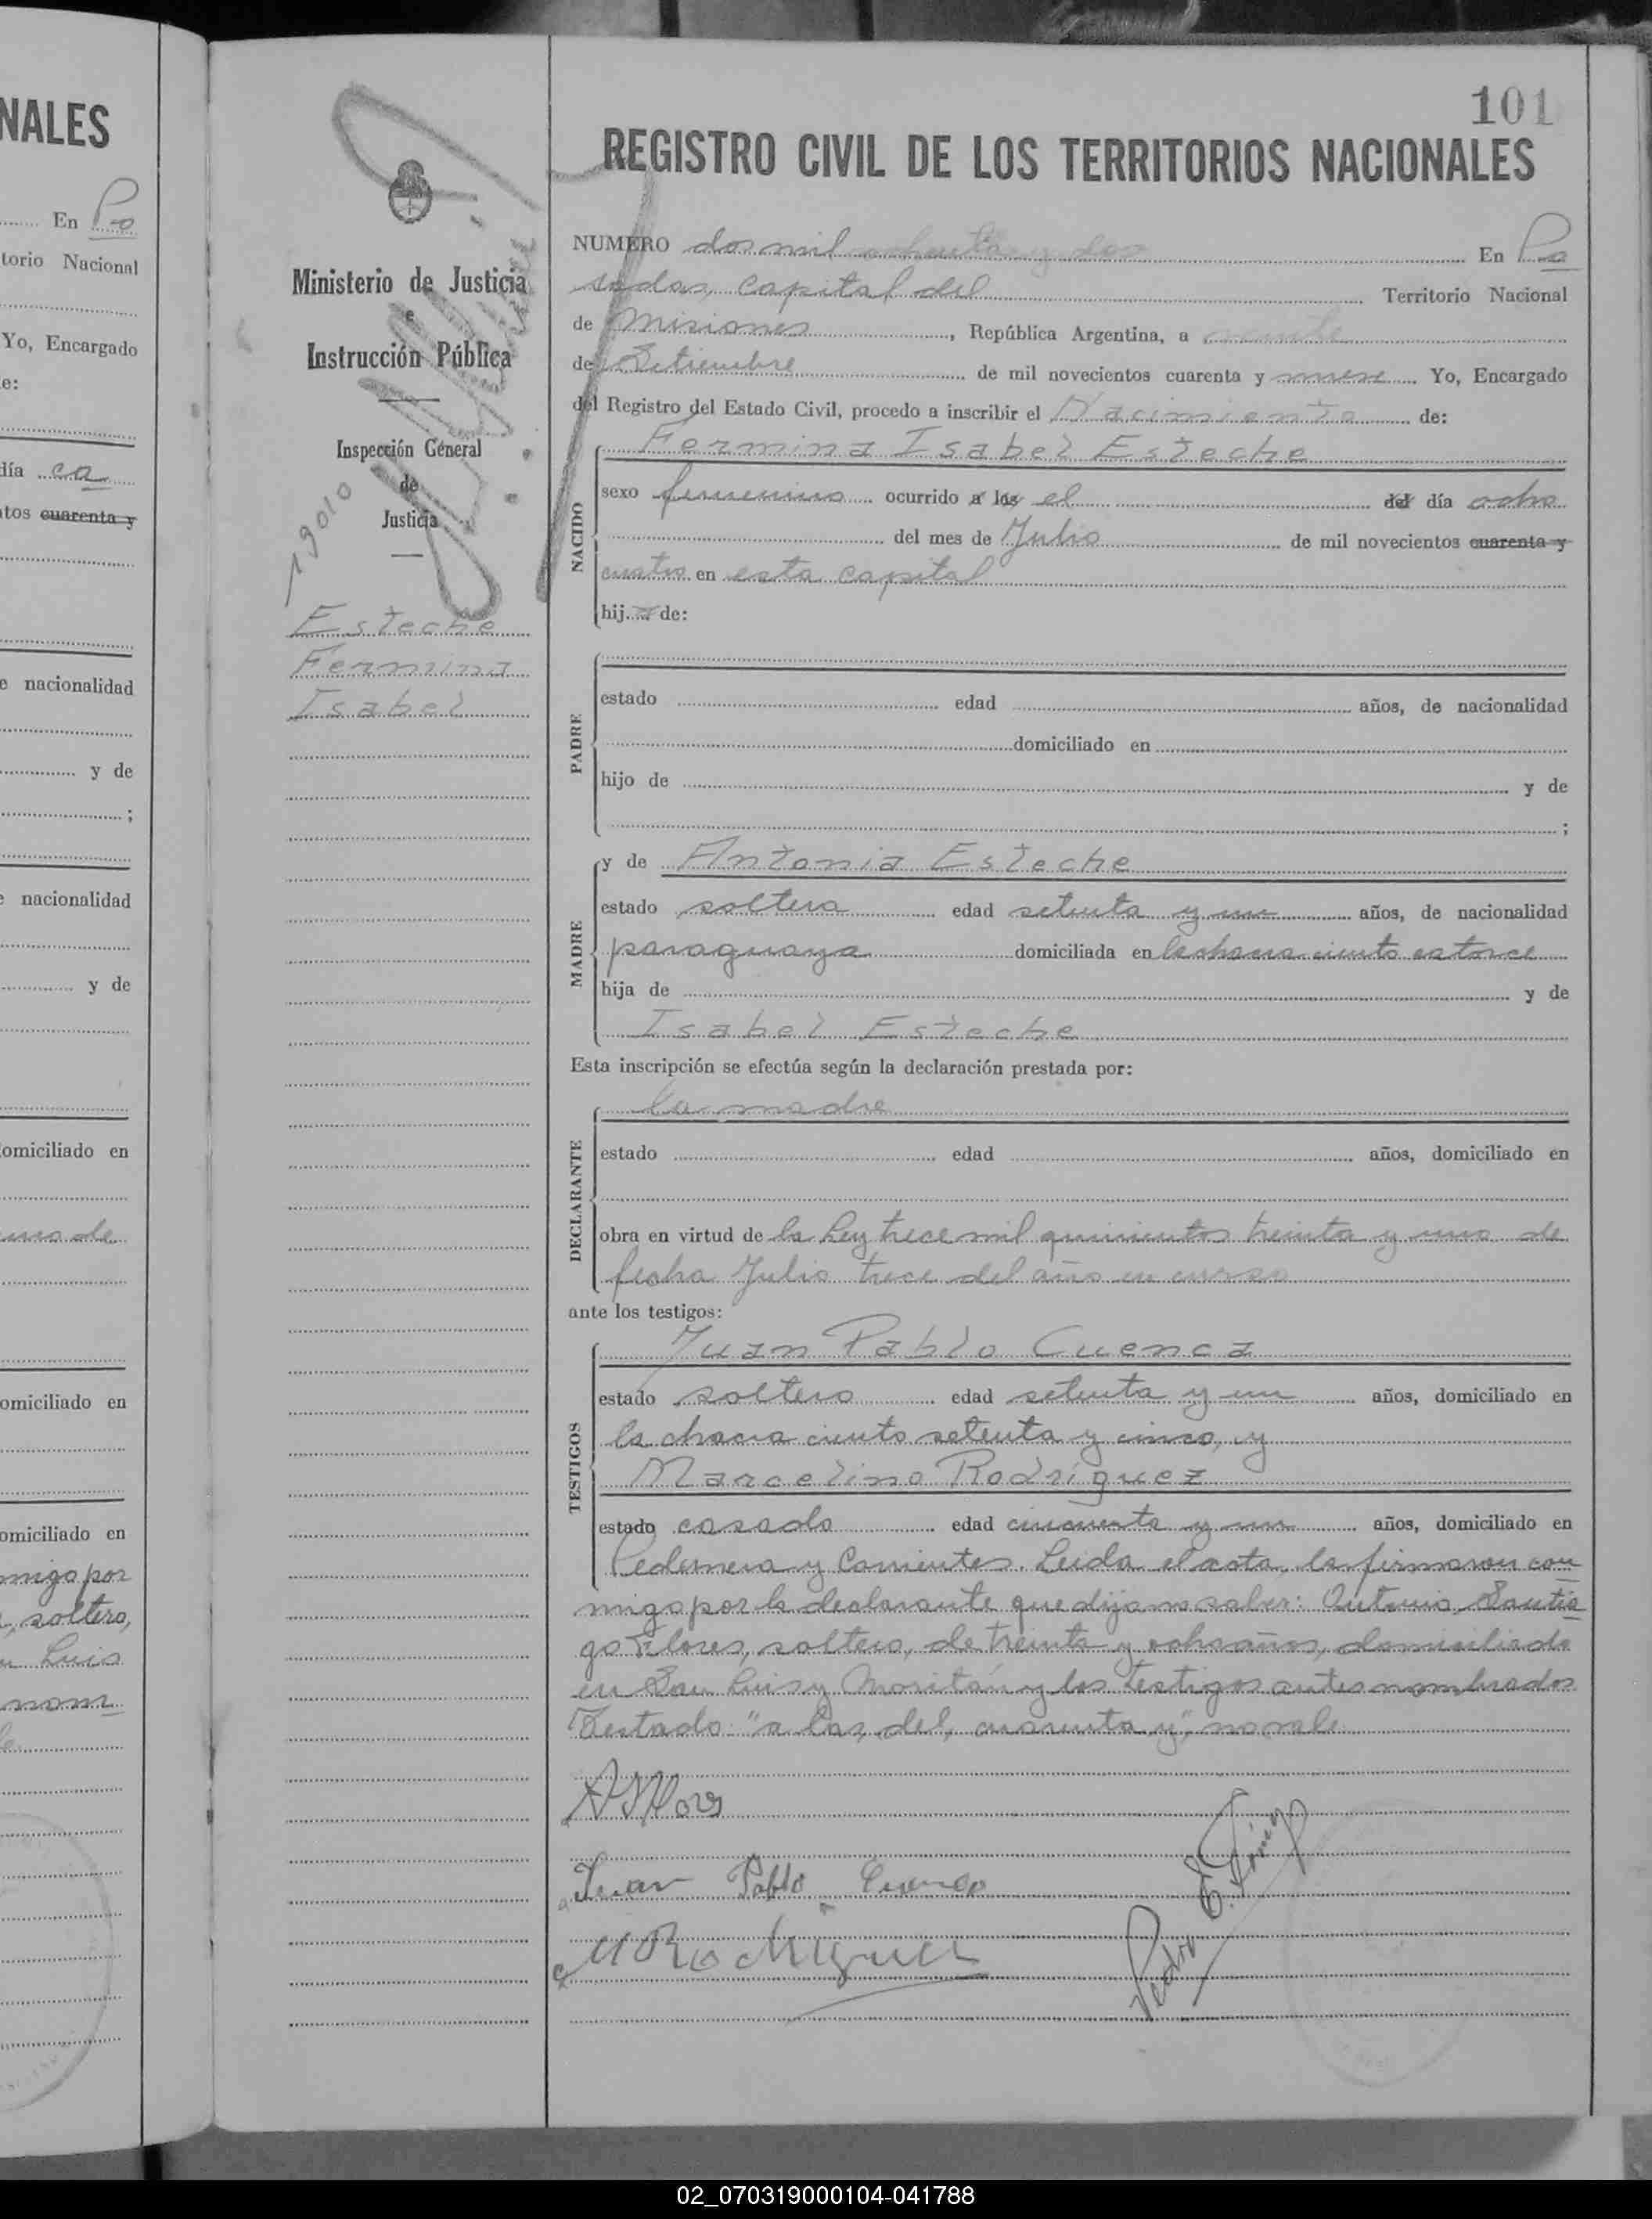 NALES
En Po
torio Nacional
Yo, Encargado
e:
día ca
tos cuarenta y
e nacionalidad
y de
;
e nacionalidad
y de
omiciliado en
uno de
omiciliado en
omiciliado en
migo por
, soltero,
n Luis
nom
Ministerio de Justicia
e
Instrucción Pública
Inspección General
de
Justicia
Esteche
Fermina
Isabel
101
REGISTRO CIVIL DE LOS TERRITORIOS NACIONALES
NUMERO dos mil ochenta y dos En Po
sadas, capital del Territorio Nacional
de Misiones, República Argentina, a
de Setiembre de mil novecientos cuarenta y nueve Yo, Encargado
del Registro del Estado Civil, procedo a inscribir el Nacimiento de:
NACIDO
Fermina Isabel Esteche
sexo femenino ocurrido a las el del día ocho
del mes de Julio de mil novecientos cuarenta y
cuatro en esta capital
hija de:
PADRE
estado edad años, de nacionalidad
domiciliado en
hijo de y de
;
MADRE
y de Antonia Esteche
estado soltera edad setenta y un años, de nacionalidad
paraguaya domiciliada en la chacra ciento catorce
hija de y de
Isabel Esteche
Esta inscripción se efectúa según la declaración prestada por:
DECLARANTE
la madre
estado edad años, domiciliado en
obra en virtud de la Ley trece mil quinientos treinta y uno de
fecha Julio trece del año en curso
ante los testigos:
TESTIGOS
Juan Pablo Cuenca
estado soltero edad setenta y un años, domiciliado en
la chacra ciento setenta y cinco, y
Marcelino Rodríguez
estado casado edad cincuenta y un años, domiciliado en
Pedernera y Corrientes. Leida el acta, la firmaron con
migo por la declarante que dijo no saber: Antonio Santia
go Flores, soltero, de treinta y ocho años, domiciliado
en San Luis y Moritán y los testigos antes nombrados
Testado: "a las, del, cuarenta y", no vale
A S Flores
Juan Pablo Cuenca
M Rodriguez
Pedro
02_070319000104-041788